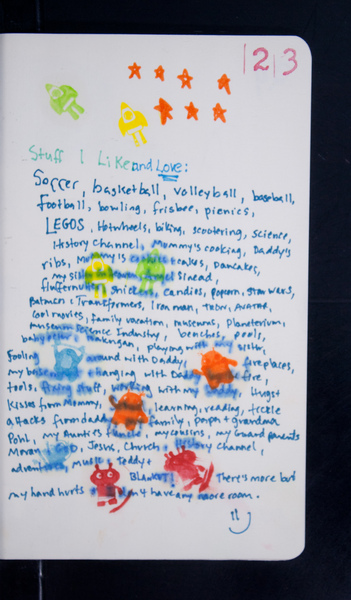 123
Stuff I Like and Love:
Soccer, basketball, volleyball, baseball,
Football, bowling, frisbee, picnics,
LEGOS, Hotwheels, biking, scootering, science,
History channel, Mommy's cooking, Daddy's
ribs, Mommy's cakes, pancakes,
my Angel Sinead,
fluffernutter, snickers, candies, popcorn, Star Wars,
Batman, Transformers, Iron man, Tron, Avatar,
cool movies, family vacation, museums, planetarium,
museum Science Industry, beaches, pools,
playing with my sister,
Fooling around with Daddy, fireplaces,
my changing with Daddy, fire,
tools, fixing stuff, working with my Daddy, Hugs +
kisses from Mommy, learning, reading, tickle
attacks from daddy, family, pop + grandma
Pohl, my Auntie's, my cousins, my Grand parents
Moran, God, Jesus, Church, History Channel,
adventures, music, Teddy +
Blanket! There's more but
my hand hurts + I don't have any more room.